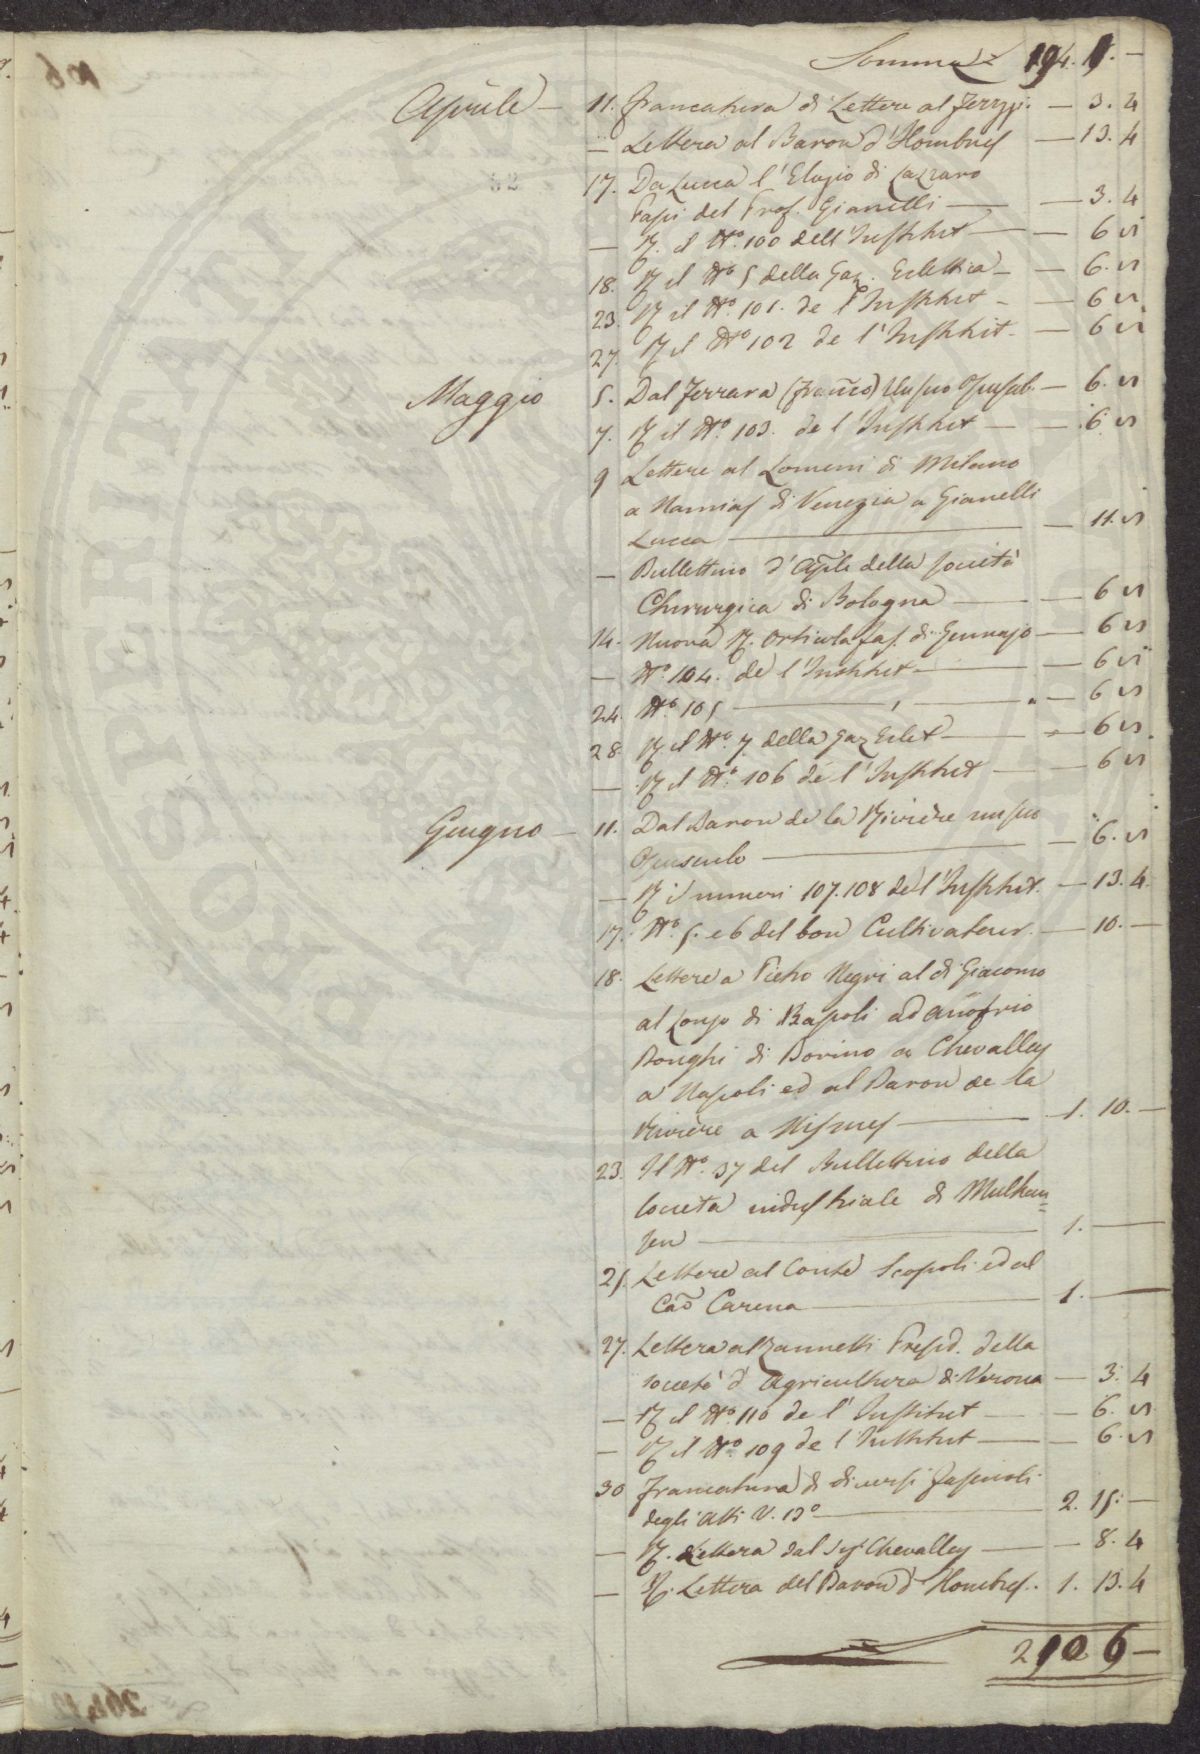 Somma 194. 9. —
Aprile — 11. Francatura di Lettere al Ferryj. — 3. 4
— Lettera al Baron d'Hombres — 13. 4
17. Da Lucca l'Elogio di Lazzaro
Papi del Prof. Gianelli — 3. 4
— R. il N.o 100 dell'Institut — 6 8
18. R il N.o 5 della Gaz. Eclettica — 6. 8
23. R il N.o 101. de l'Institut — 6 8
27. R il N.o 102 de l'Institut — 6 8
Maggio 5. Dal Ferrara (franco) un suo Opuscol. — 6. 8
7. R il N.o 103. de l'Institut — 6 8
9 Lettere al Lomeni di Milano
a Namias di Venezia a Gianelli
Lucca — 11. 8
— Bullettino d'Aple della Società
Chirurgica di Bologna — 6 8
14. Nuova R. Orticola fas. di Gennajo — 6 8
— N.o 104. de l'Institut — 6 8
24. N.o 105 — 6 8
28. R il N.o 7 della Gaz Eclet — 6 8
— R il N.o 106 de l'Institut — 6 8
Giugno — 11. Dal Baron de la Rivière un suo
Opusculo — 6. 8
— R i numeri 107. 108 de l'Institut. — 13. 4
17. N.o 5. e 6 del bon Cultivateur. — 10. —
18. Lettere a Pietro Negri al di Giacomo
al Longo di Napoli ad Anofrio
Bonghi di Bovino a Chevalley
a Napoli ed al Baron de la
Rivière a Nismes — 1. 10. —
23. Il N.o 37 del Bullettino della
Società industriale di Mulhau=
sen — 1. —
25. Lettere al Conte Scopoli ed al
Cav Carena — 1. —
27. Lettera al Zannetti Presid. della
società d'Agricultura di Verona — 3. 4
— R il N.o 110 de l'Institut — 6. 8
— R il N.o 109 de l'Institut — 6. 8
30 Francatura di diversi Fascicoli
degli Atti V. 13o — 2. 15. —
— R. Lettera dal Sig Chevalley — 8. 4
— R. Lettera del Baron d'Hombres. 1. 13. 4
210 6 —